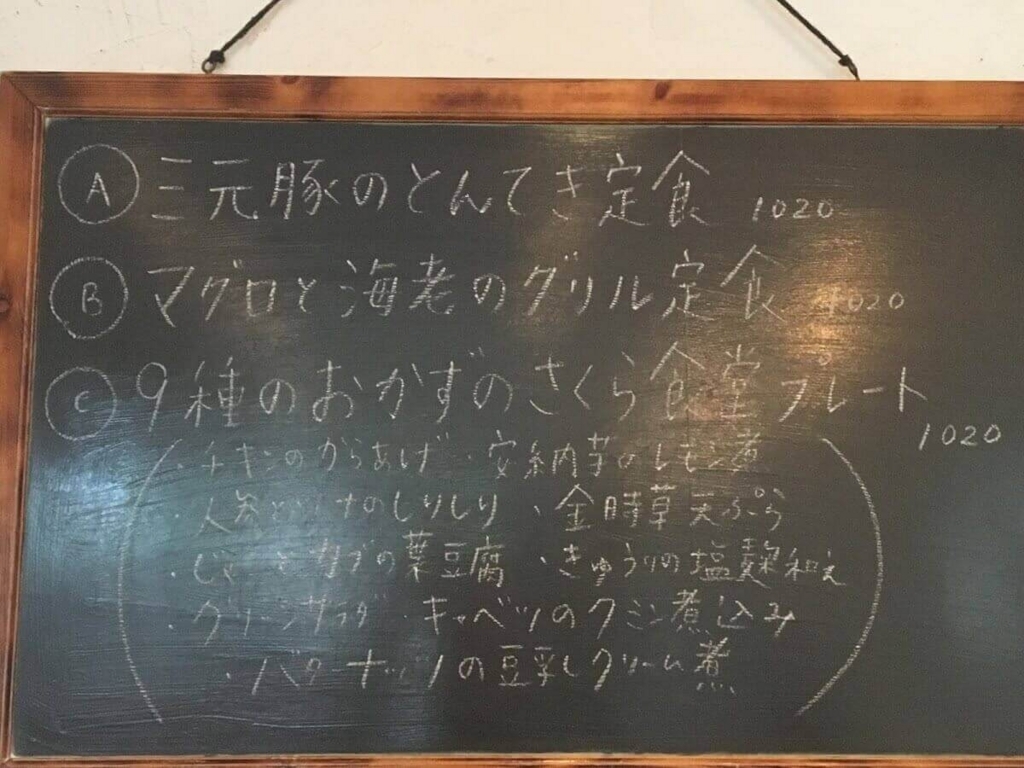 A 三元豚のとんてき定食 1020
B マグロと海老のグリル定食 1020
C 9種のおかずのさくら食堂プレート
1020
・チキンのからあげ ・安納芋のレモン煮
・人参とツナのしりしり ・金時草天ぷら
・じゃことカブの葉豆腐 ・きゅうりの塩麹和え
・グリーンサラダ ・キャベツのクミン煮込み
・バターナッツの豆乳クリーム煮